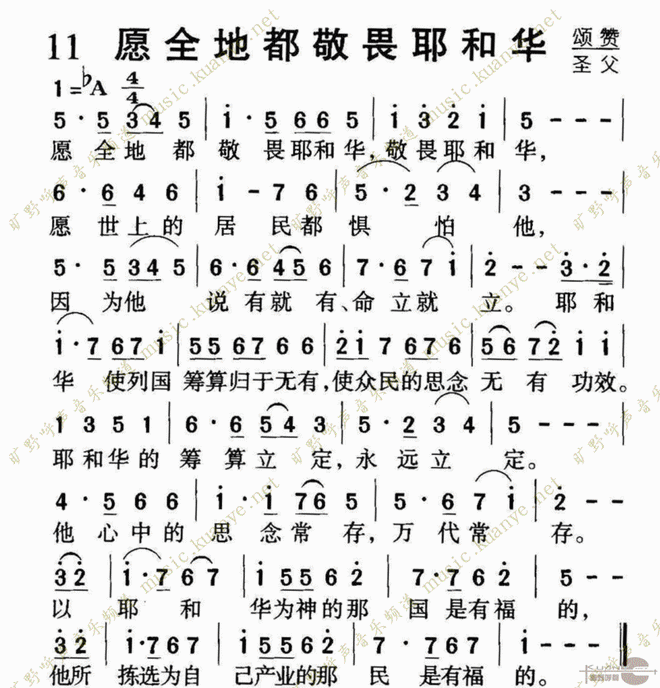 11 愿全地都敬畏耶和华 颂赞
圣父
1=♭A 4/4
5·5 3 4 5 | i·5 6 6 5 | i 3 2 i | 5 - - - |
愿全地都敬畏耶和华,敬畏耶和华,
6·6 6 4 6 | i - 7 6 | 5·2 3 4 | 3 - - - |
愿世上的居民都惧怕他,
5·5 3 4 5 | 6·6 4 5 6 | 7·6 7 i | 2 - - 3·2 |
因为他说有就有、命立就立。耶和
i·7 6 7 i | 5 5 6 7 6 6 | 2 i 7 6 7 6 | 5 6 7 2 i i |
华使列国筹算归于无有,使众民的思念无有功效。
1 3 5 1 | 6·6 5 4 3 | 5·2 3 4 | 5 - - - |
耶和华的筹算立定,永远立定。
4·5 6 6 | i·i 7 6 5 | 5·6 7 i | 2 - -
他心中的思念常存,万代常存。
3 2 | i·7 6 7 | i 5 5 6 2 | 7·6 7 6 | 5 - -
以耶和华为神的那国是有福的,
3 2 | i·7 6 7 | i 5 5 6 2 | i·7 6 7 | i - - - |
他所拣选为自己产业的那民是有福的。
旷野呼声音乐频道 music.kuanye.net